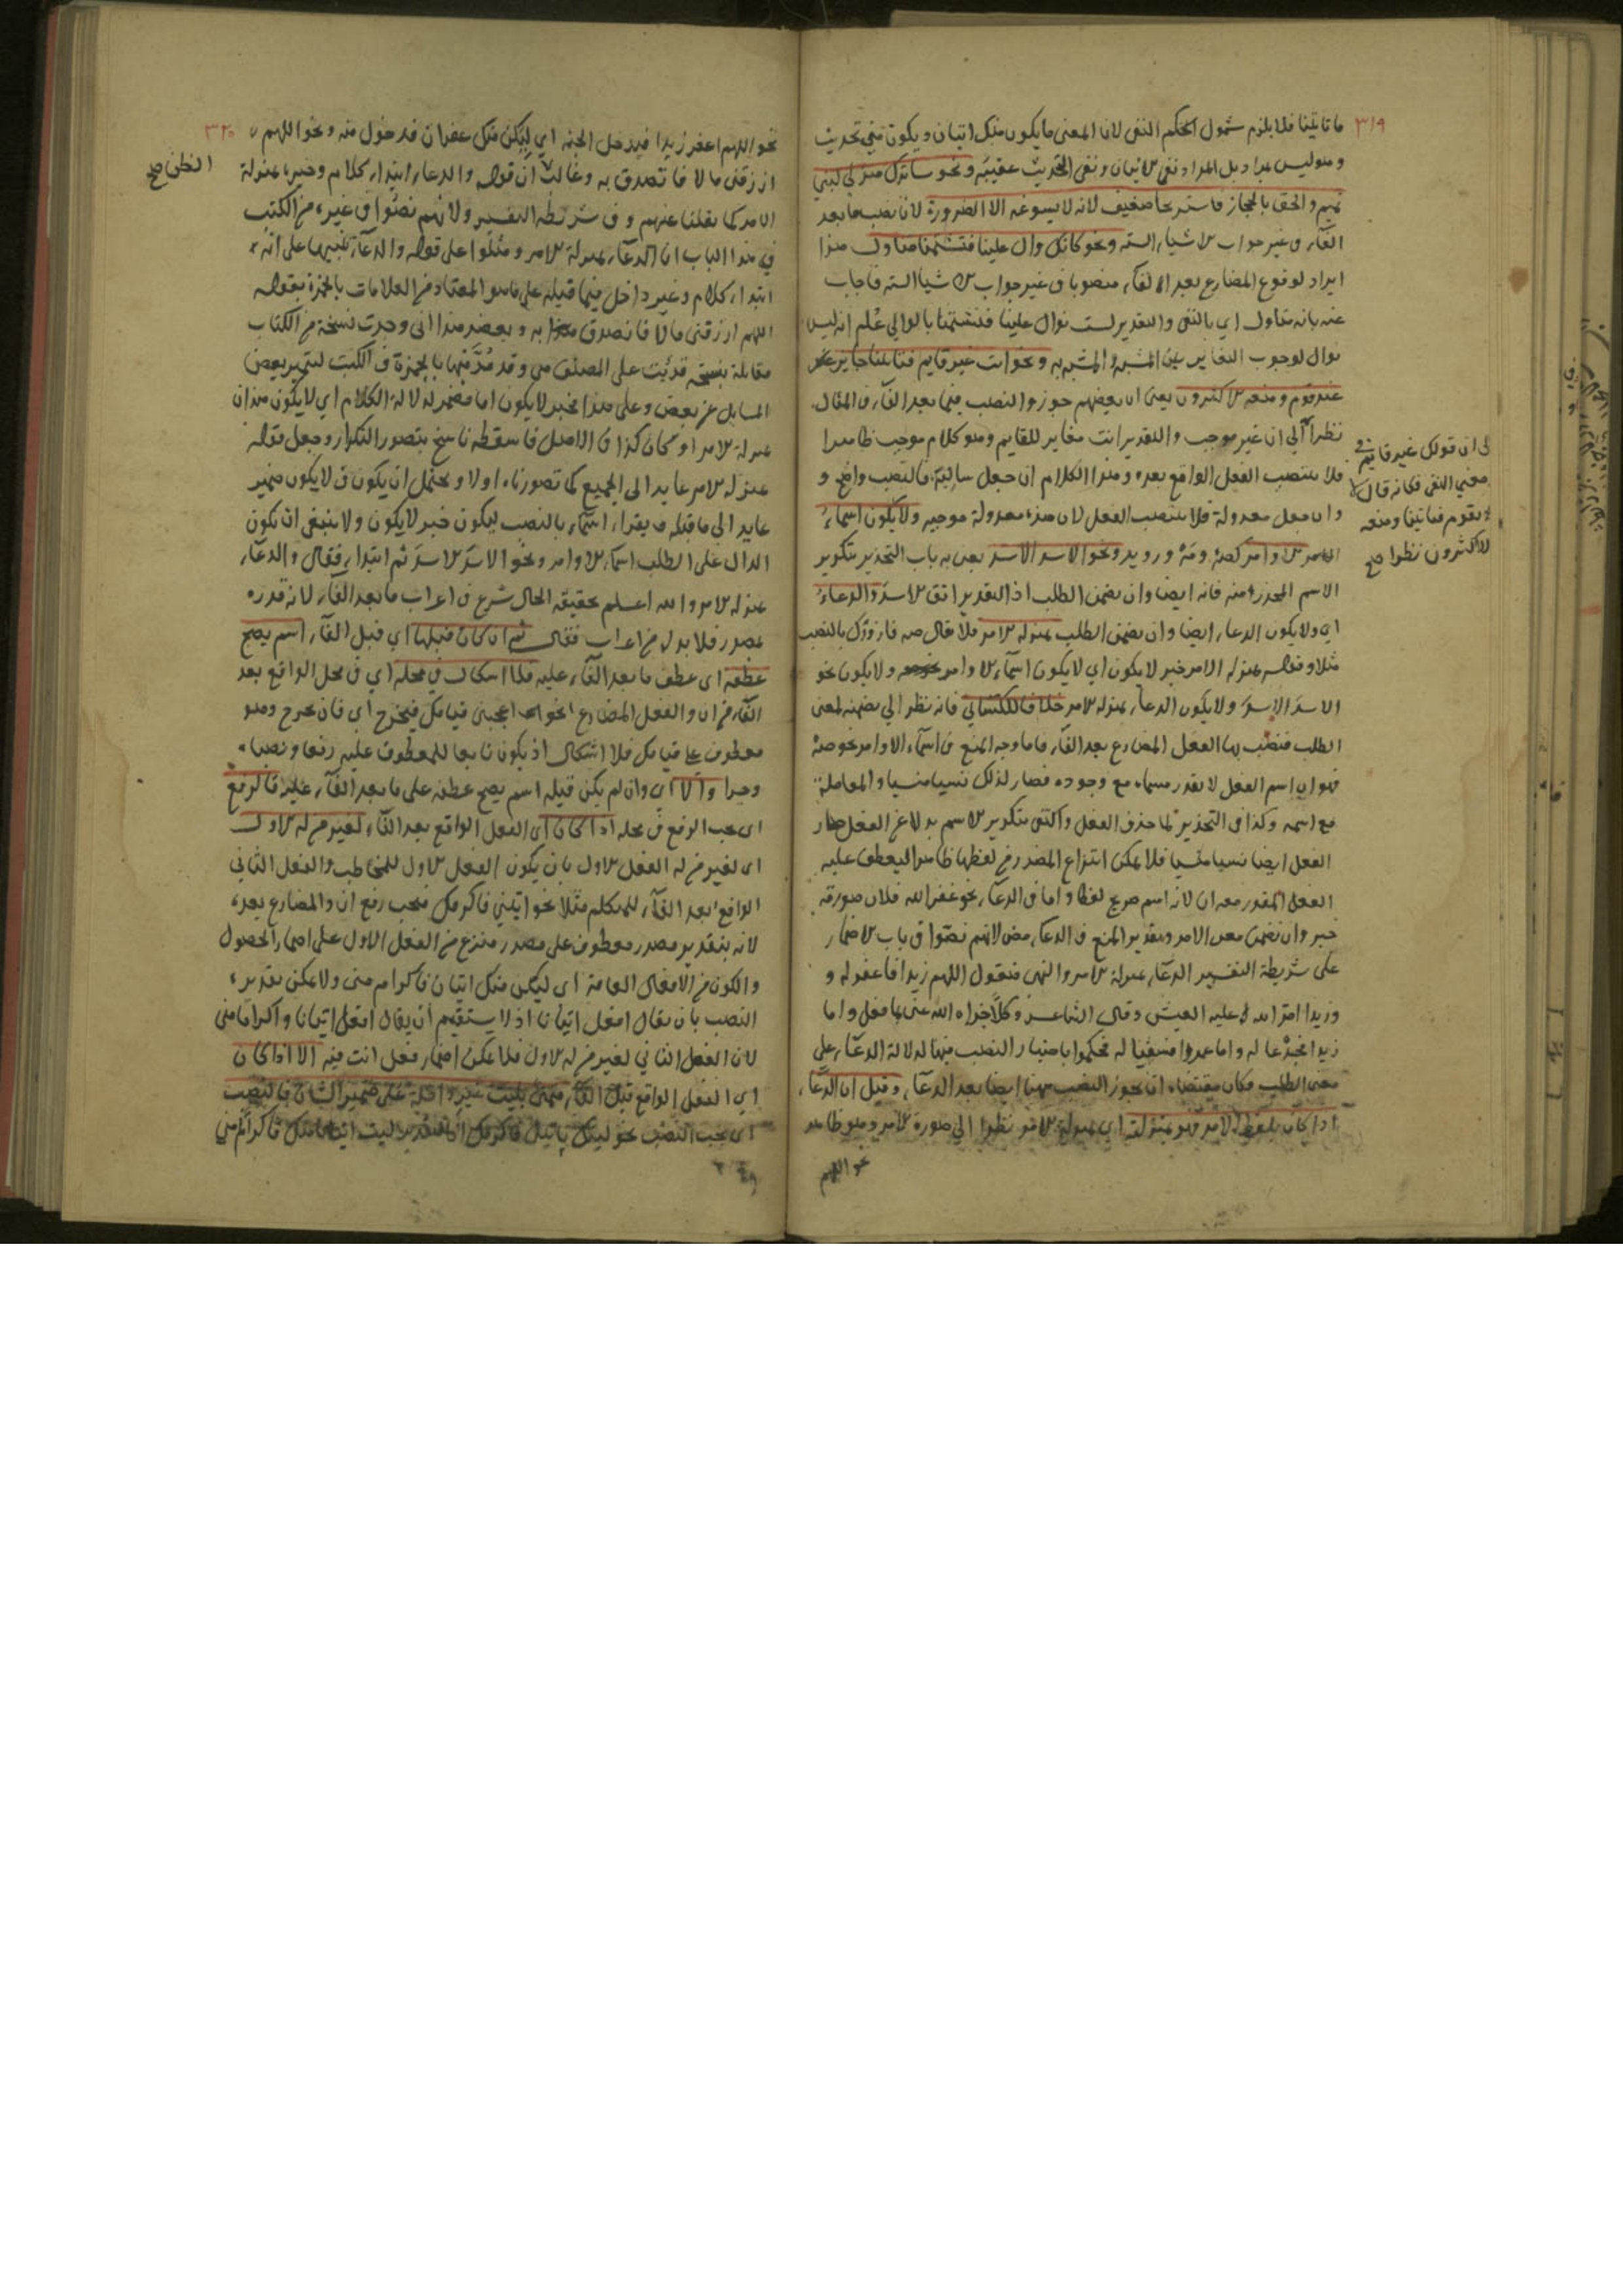 ٣١٩
ما تاتينا فلا يلزم شمول الحكم النفى لان المعنى ما يكون منك اتيان ويكون منى تحديث
وهو ليس مراد بل المراد نفى الاتيان ونفى التحديث عقيبه ونحو ساترك منزلى لبنى
تميم والحق بالحجاز فاستريحا ضعيف لانه لا يسوغه الا الضرورة لانا نصب ما بعد
الفاء فى غير جواب الاشياء الستة ونحو كانك وال علينا فتشتمنا متاول هذا
ايراد لوقوع المضارع بعد الفاء منصوبا فى غير جواب الاشياء الستة فاجاب
عنه بانه متاول اى بالنفى والتقدير لست بوال علينا فتشتمنا بالوالى علم انه ليس
بوال لوجوب التغاير بين المشبه والمشبه به ونحو انت غير قايم فتاتينا جايز
عند قوم ومنعه الاكثرون يعنى ان بعضهم جوزوا النصب فيما بعد الفاء فى المثال
نظرا الى ان غير موجب والتقدير انت مغاير للقايم وهو كلام موجب ظاهرا
فلا ينتصب الفعل الواقع بعده وهذا الكلام ان جعل سالبة فالنصب واضح و
وان جعل معدولة فلا ينتصب الفعل لان هذه معدولة موجبه ولا يكون اسماء
الاوامر كصه ومه ورويد ونحو الاسد الاسد يعنى به باب التحذير بتكرير
الاسم المحذر منه فانه ايضا وان تضمن الطلب اذ التقدير اتق الاسد والدعاء
اى ولا يكون الدعاء ايضا وان تضمن الطلب بمنزلة الامر فلا يقال صه فازورك بالنصب
مثلا وقوله بمنزلة الامر خبر لا يكون اى لا يكون اسماء الاوامر ولا يكون نحو
الاسد الاسد ولا يكون الدعاء بمنزلة الامر خلافا للكسائي فانه نظر الى تضمنه لمعنى
الطلب فنصب بها الفعل المضارع بعد الفاء فاما وجه المنع فى اسماء الاوامر نحو صه
فهو ان اسم الفعل لا يقدر مسماه مع وجوده فصار لذلك نسيا منسيا والمعاملة
مع اسمه وكذا فى التحذير لما حذف الفعل واكتفى بتكرير الاسم بدلا عن الفعل صار
الفعل ايضا نسيا منسيا فلا يمكن انتزاع المصدر من لفظها ظاهرا ليعطف عليه
الفعل المقدر معه ان لانه اسم صريح لفظا واما فى الدعاء نحو غفر الله فلان صورته
خبر وان تضمن معنى الامر وتقدير المنع فى الدعاء لانهم نصوا فى باب الاضمار
على شريطة التفسير الدعاء بمنزلة الامر والنهى فتقول اللهم زيدا فاغفر له و
وزيدا امر الله عليه العيش وقال الشاعر وكلا جزاه الله عنى بما فعل واما
زيدا فجدعا له واما عمروا فسقيا له فحكموا باختيار النصب فيها لدلالة الدعاء على
معنى الطلب فكان مقتضاه ان يجوز النصب ههنا ايضا بعد الدعاء وقيل ان الدعاء
اذا كان بلفظ الامر فهو بمنزلته اى بمنزلة الامر نظرا الى صورة الامر وهو ظاهر
نحو اللهم
الى ان قولك غير قايم فى
معنى النفى فكانه قال لا
يقوم فتاتينا ومنعه
الاكثرون نظرا صح
٣٢٠
نحو اللهم اغفر زيدا فيدخل الجنه اى ليكن منك غفران فدخول منه ونحو اللهم
ارزقنى مالا فاتصدق به وغالب ان قوله والدعاء ابتداء كلام وخبره بمنزلة
الامر كما نقلنا عنهم وفى شريطه التفسير ولانهم نصوا فى غيره من الكتب
فى هذا الباب ان الدعاء بمنزلة الامر ومثلوا على قوله والدعاء تنبيها على انه
ابتداء كلام وغير داخل فيما قبله على ما هو المعتاد من العلامات بالحمرة بقوله
اللهم ارزقنى مالا فاتصدق به وبعضد هذا انى وجدت نسخة من الكتاب
مقابلة بنسخة قرئت على المصنف وقد مد فيها بالحمرة فى الكتب لتمييز بعض
المسايل عن بعض وعلى هذا فخبر لا يكون اما مضمر لدلالة الكلام اى لا يكون هذان
بمنزلة الامر او كان كذا فى الاصل فاسقطه ناسخ بتصور التكرار وجعل قوله
بمنزله الامر عايد الى الجميع كما تصورناه اولا ويحتمل ان يكون فى لا يكون ضمير
عايد الى ما قبله ويقراء اسماء بالنصب ليكون خبر لا يكون ولا ينبغى ان يكون
الدال على الطلب اسماء الاوامر ونحو الاسد الاسد ثم ابتداء فقال والدعاء
بمنزله الامر والله اعلم بحقيقه الحال شرع فى اعراب ما بعد الفاء لانه قدره
بمصدر فلا بد له من اعراب فقال ثم ان كان قبلها اى قبل الفاء اسم يصح
عطفه اى عطف ما بعد الفاء عليه فلا اشكال فى محله اى فى محل الواقع بعد
الفاء من ان والفعل المضارع نحو اعجبنى قيامك فيخرج اى فان يخرج وهو
معطوف على قيامك فلا اشكال اذ يكون تابعا للمعطوف عليه رفعا ونصبا
وجرا والا اى وان لم يكن قبله اسم يصح عطفه على ما بعد الفاء عليه فالرفع
اى يجب الرفع فى محله اذا كان اى الفعل الواقع بعد الفاء لغير من له الاول
اى لغير من له الفعل الاول بان يكون الفعل الاول للمخاطب والفعل الثانى
الواقع بعد الفاء للمتكلم مثلا نحو ايتنى فاكرمك فيجب رفع ان والمضارع بعده
لانه بتقدير مصدر معطوف على مصدر منتزع من الفعل الاول على اضمار الحصول
والكون من الافعال العامة اى ليكن منك اتيان فاكرام منى ولا يمكن تقديره
النصب بان يقال افعل اتيانا اذ لا يستقيم ان يقال افعل اتيانا واكراما منى
لان الفعل الثانى لغير من له الاول فلا يمكن اضمار فعل انت فيه الا اذا كان
اى الفعل الواقع قبل الفاء بليت غير داخلة على ضمير الشان فالنصب
اى يجب النصب نحو ليتك ياتيك فاكرمك اذ التقدير ليت اتيانا منك فاكراما منى
الظن صح